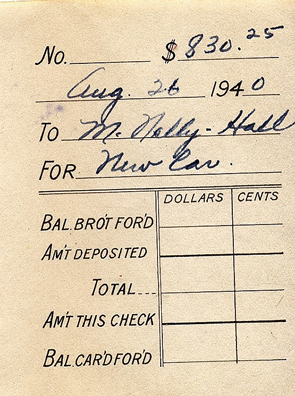 No. $830.25
Aug. 26 1940
To McNally-Hall
For New Car.
DOLLARS CENTS
BAL. BRO'T FOR'D
AM'T DEPOSITED
TOTAL
AM'T THIS CHECK
BAL. CAR'D FOR'D